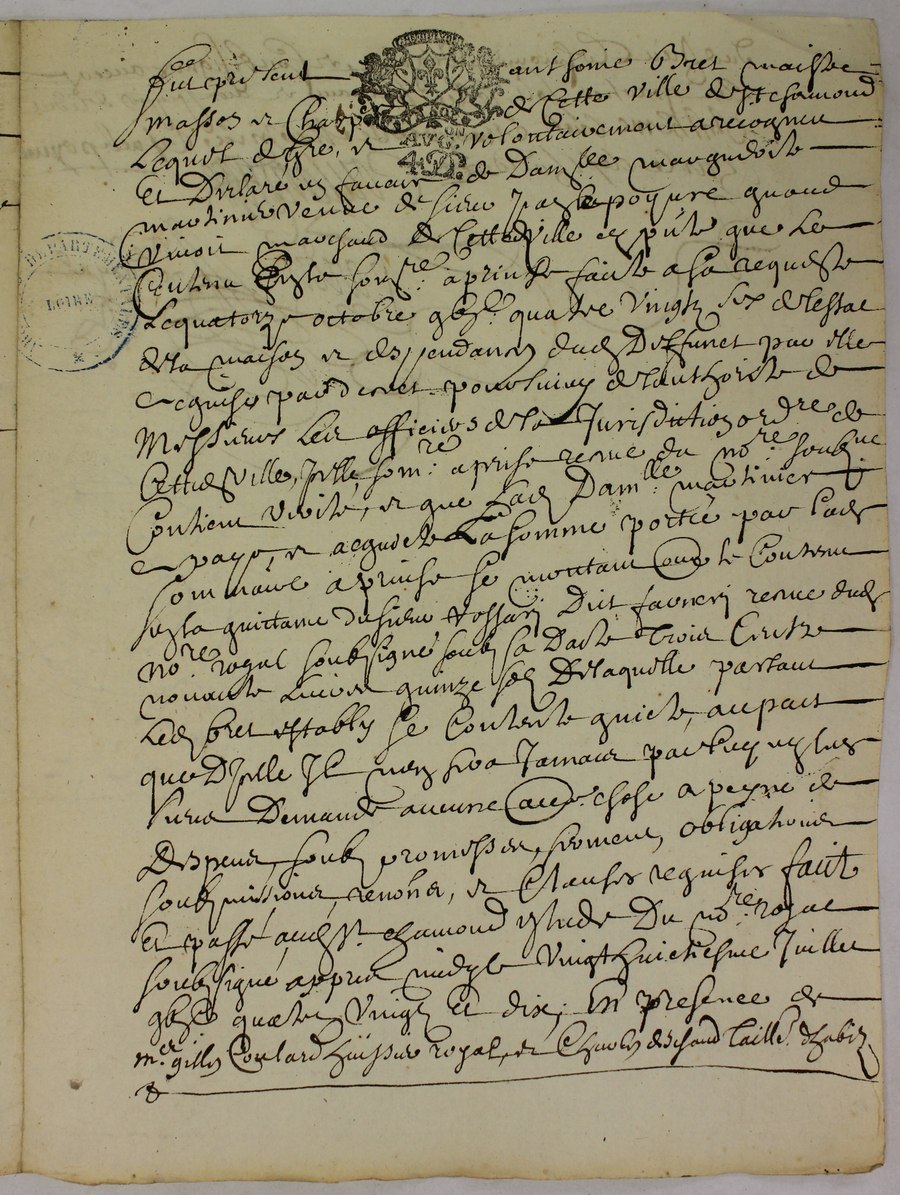 fut present anthoine Bret maistre
masson et charp de cette ville de st chamond
Lequel de gre, et volontairement a recogneu
Et Declaré en faveur de Damlle margueritte
martinier veuve de sieur quand
vivoit marchand de cette ville cy pnte que Le
Contenu faicte a sa requeste
Le quatorze octobre gbic quatre vingtz six de lestat
de la maison et despendances dud Deffunct par elle
acquise par decret poursuivy de lauthorite de
Messieurs Les officiers de la Jurisdiction ordre de
Cetted ville, recue du nore soubne
Contient verité, et que Lad Damlle martinier
a payé et acquicté La somme portée par Lad
sommaire aprinse se montant le Contenu
en la quittance du sieur recue dud
nore royal soubsigné soubz sa Datte Trois Centz
nonante Livres quinze solz De laquelle partant
Led Bret establi se Contente quicte, au pact
que D'jcelle Jl nen sera Jamais
Demandé aucune chose a peyne de
despens, soubz promesses, serment, obligations
soubmissions, renons, et Clauses requises faict
Et passé aud St chamond estude Du nore royal
soubsigné appres midy le vingthuictiesme Juillet
gbic quatre vingtz Et dix, En presence de
me gilles Coulard huissier royal, et Charles taillr dhabitz
AVG.ON
4.D.
DEPARTEMENTALES
LOIRE